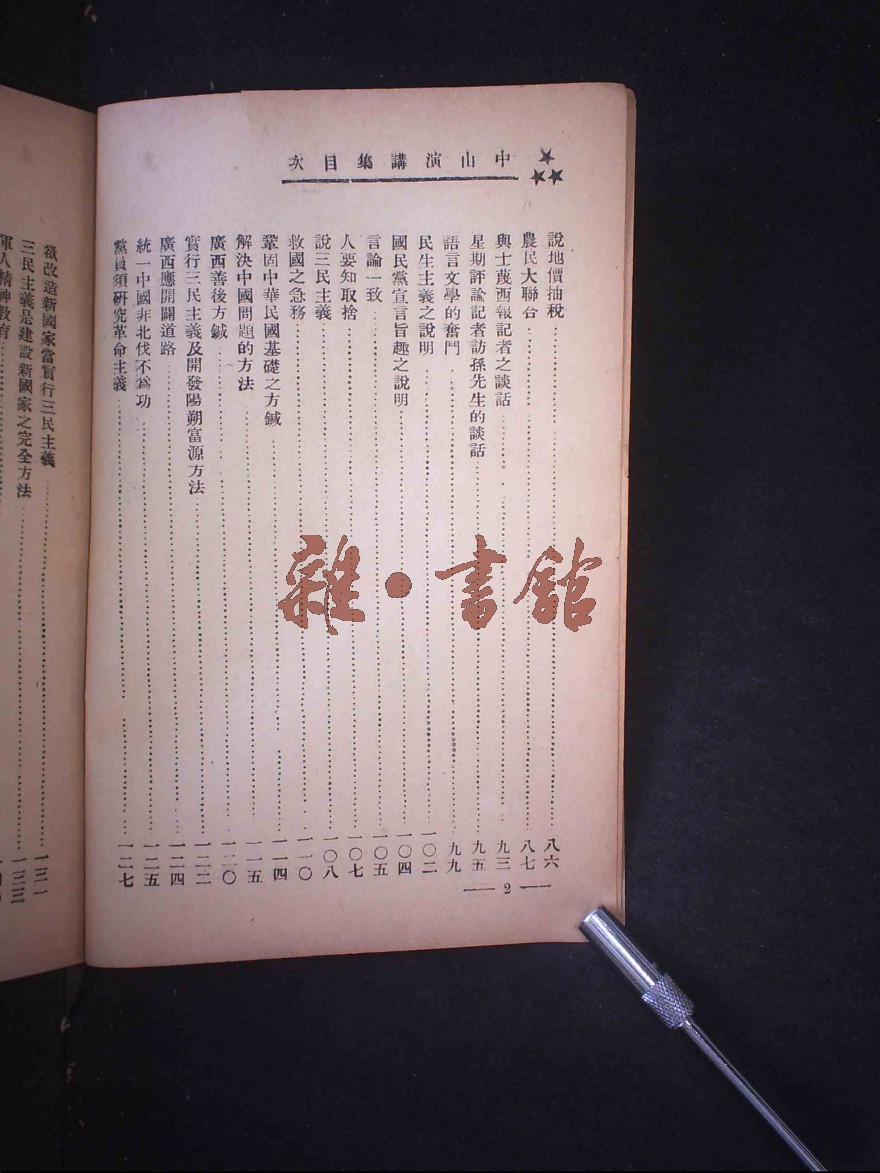 中山演講集目次
說地價抽稅……八六
農民大聯合……八七
與士蔑西報記者之談話……九三
星期評論記者訪孫先生的談話……九五
語言文學的奮鬥……九九
民生主義之說明……一〇二
國民黨宣言旨趣之說明……一〇四
言論一致……一〇五
人要知取捨……一〇七
說三民主義……一〇八
救國之急務……一一〇
鞏固中華民國基礎之方鍼……一一四
解決中國問題的方法……一一五
廣西善後方鍼……一二〇
實行三民主義及開發陽朔富源方法……一二二
廣西應開闢道路……一二四
統一中國非北伐不爲功……一二五
黨員須研究革命主義……一二七
— 2 —
欲改造新國家當實行三民主義……一三一
三民主義是建設新國家之完全方法……一三三
軍人精神教育
雜·書館